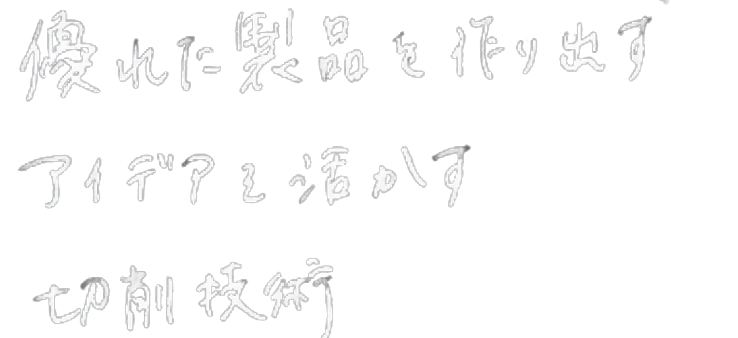 優れた製品を作り出す
アイデアを活かす
切削技術